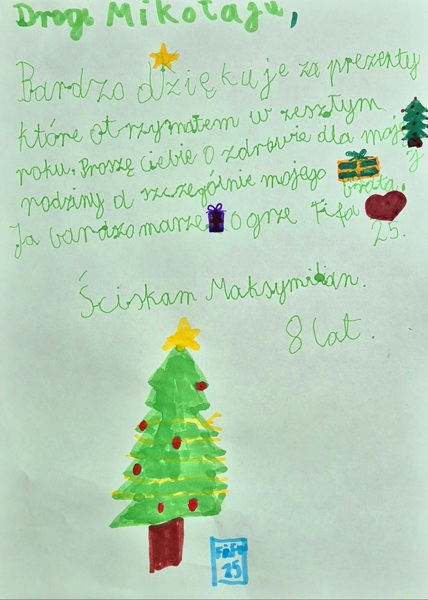 Drogi Mikołaju,
Bardzo dziękuje za prezenty
które otrzymałem w zeszłym
roku. Proszę Ciebie o zdrowie dla mojej
rodziny a szczególnie mojego brata.
Ja bardzo marzę o grze Fifa 25.
Ściskam Maksymilian.
8 lat.
Fifa
25